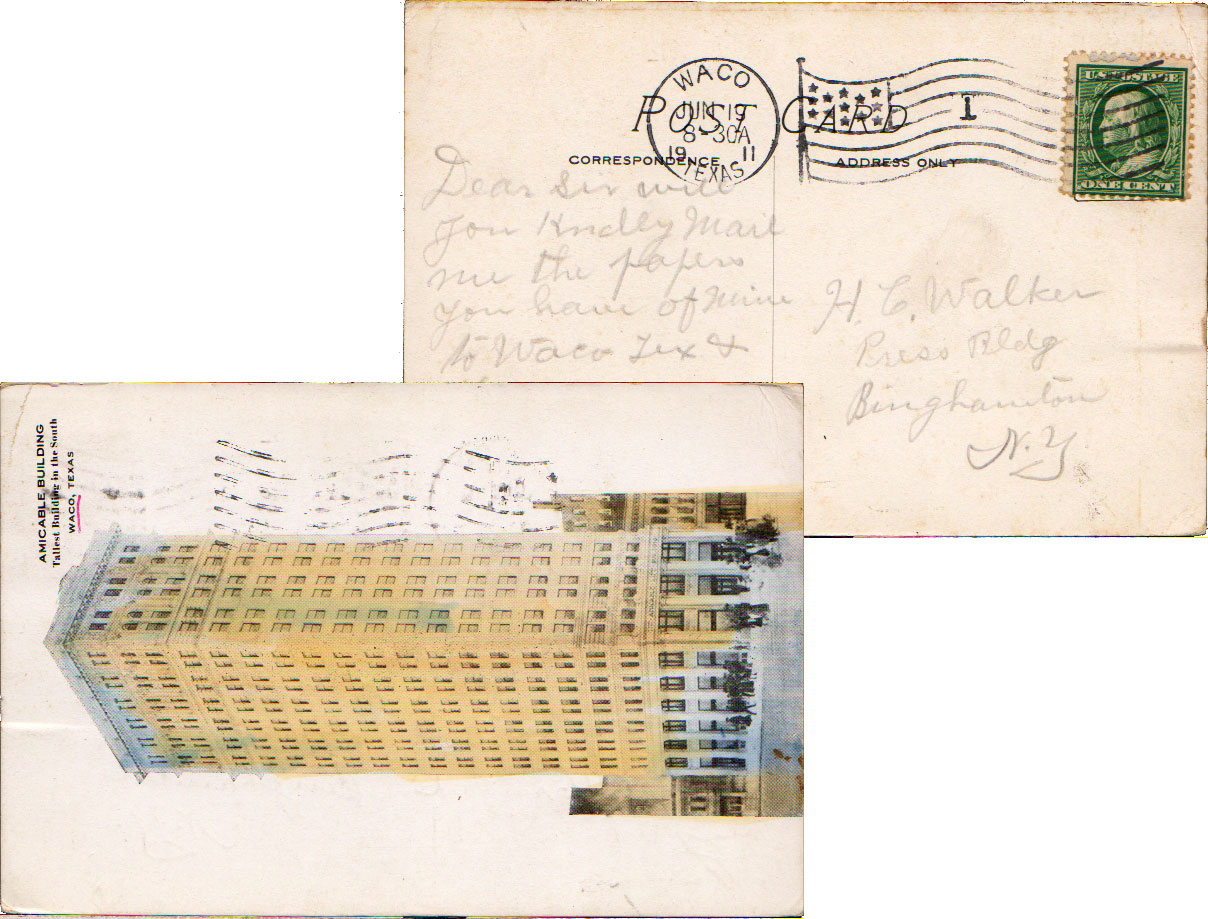 WACO
JUN 19
8-30A
19 11
TEXAS
1
U.S. POSTAGE
ONE CENT
POST CARD
CORRESPONDENCE
ADDRESS ONLY
Dear Sir will
you Kndly Mail
me the papers
you have of Mine
to Waco Tex &
H. C. Walker
Press Bldg
Binghamton
N.Y
AMICABLE BUILDING
Tallest Building in the South
WACO, TEXAS